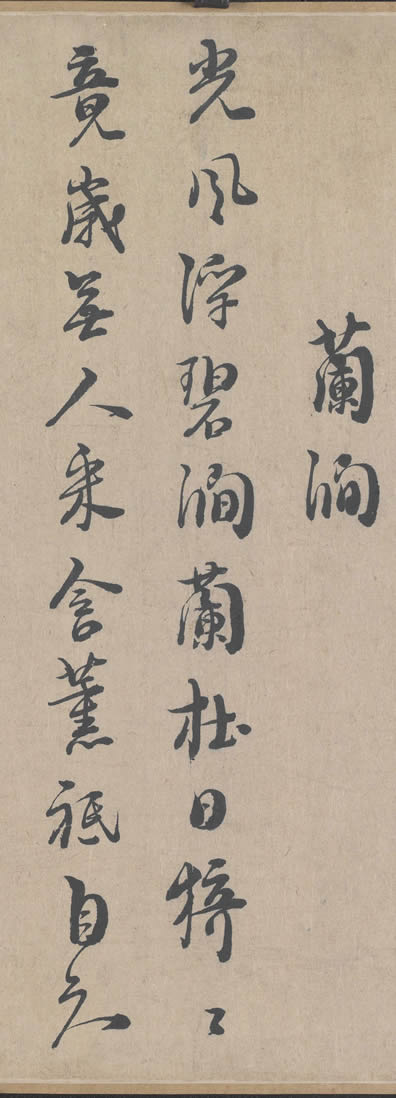 蘭澗
光風浮碧澗蘭杜日猗〻
竟歲無人采含薰祗自知